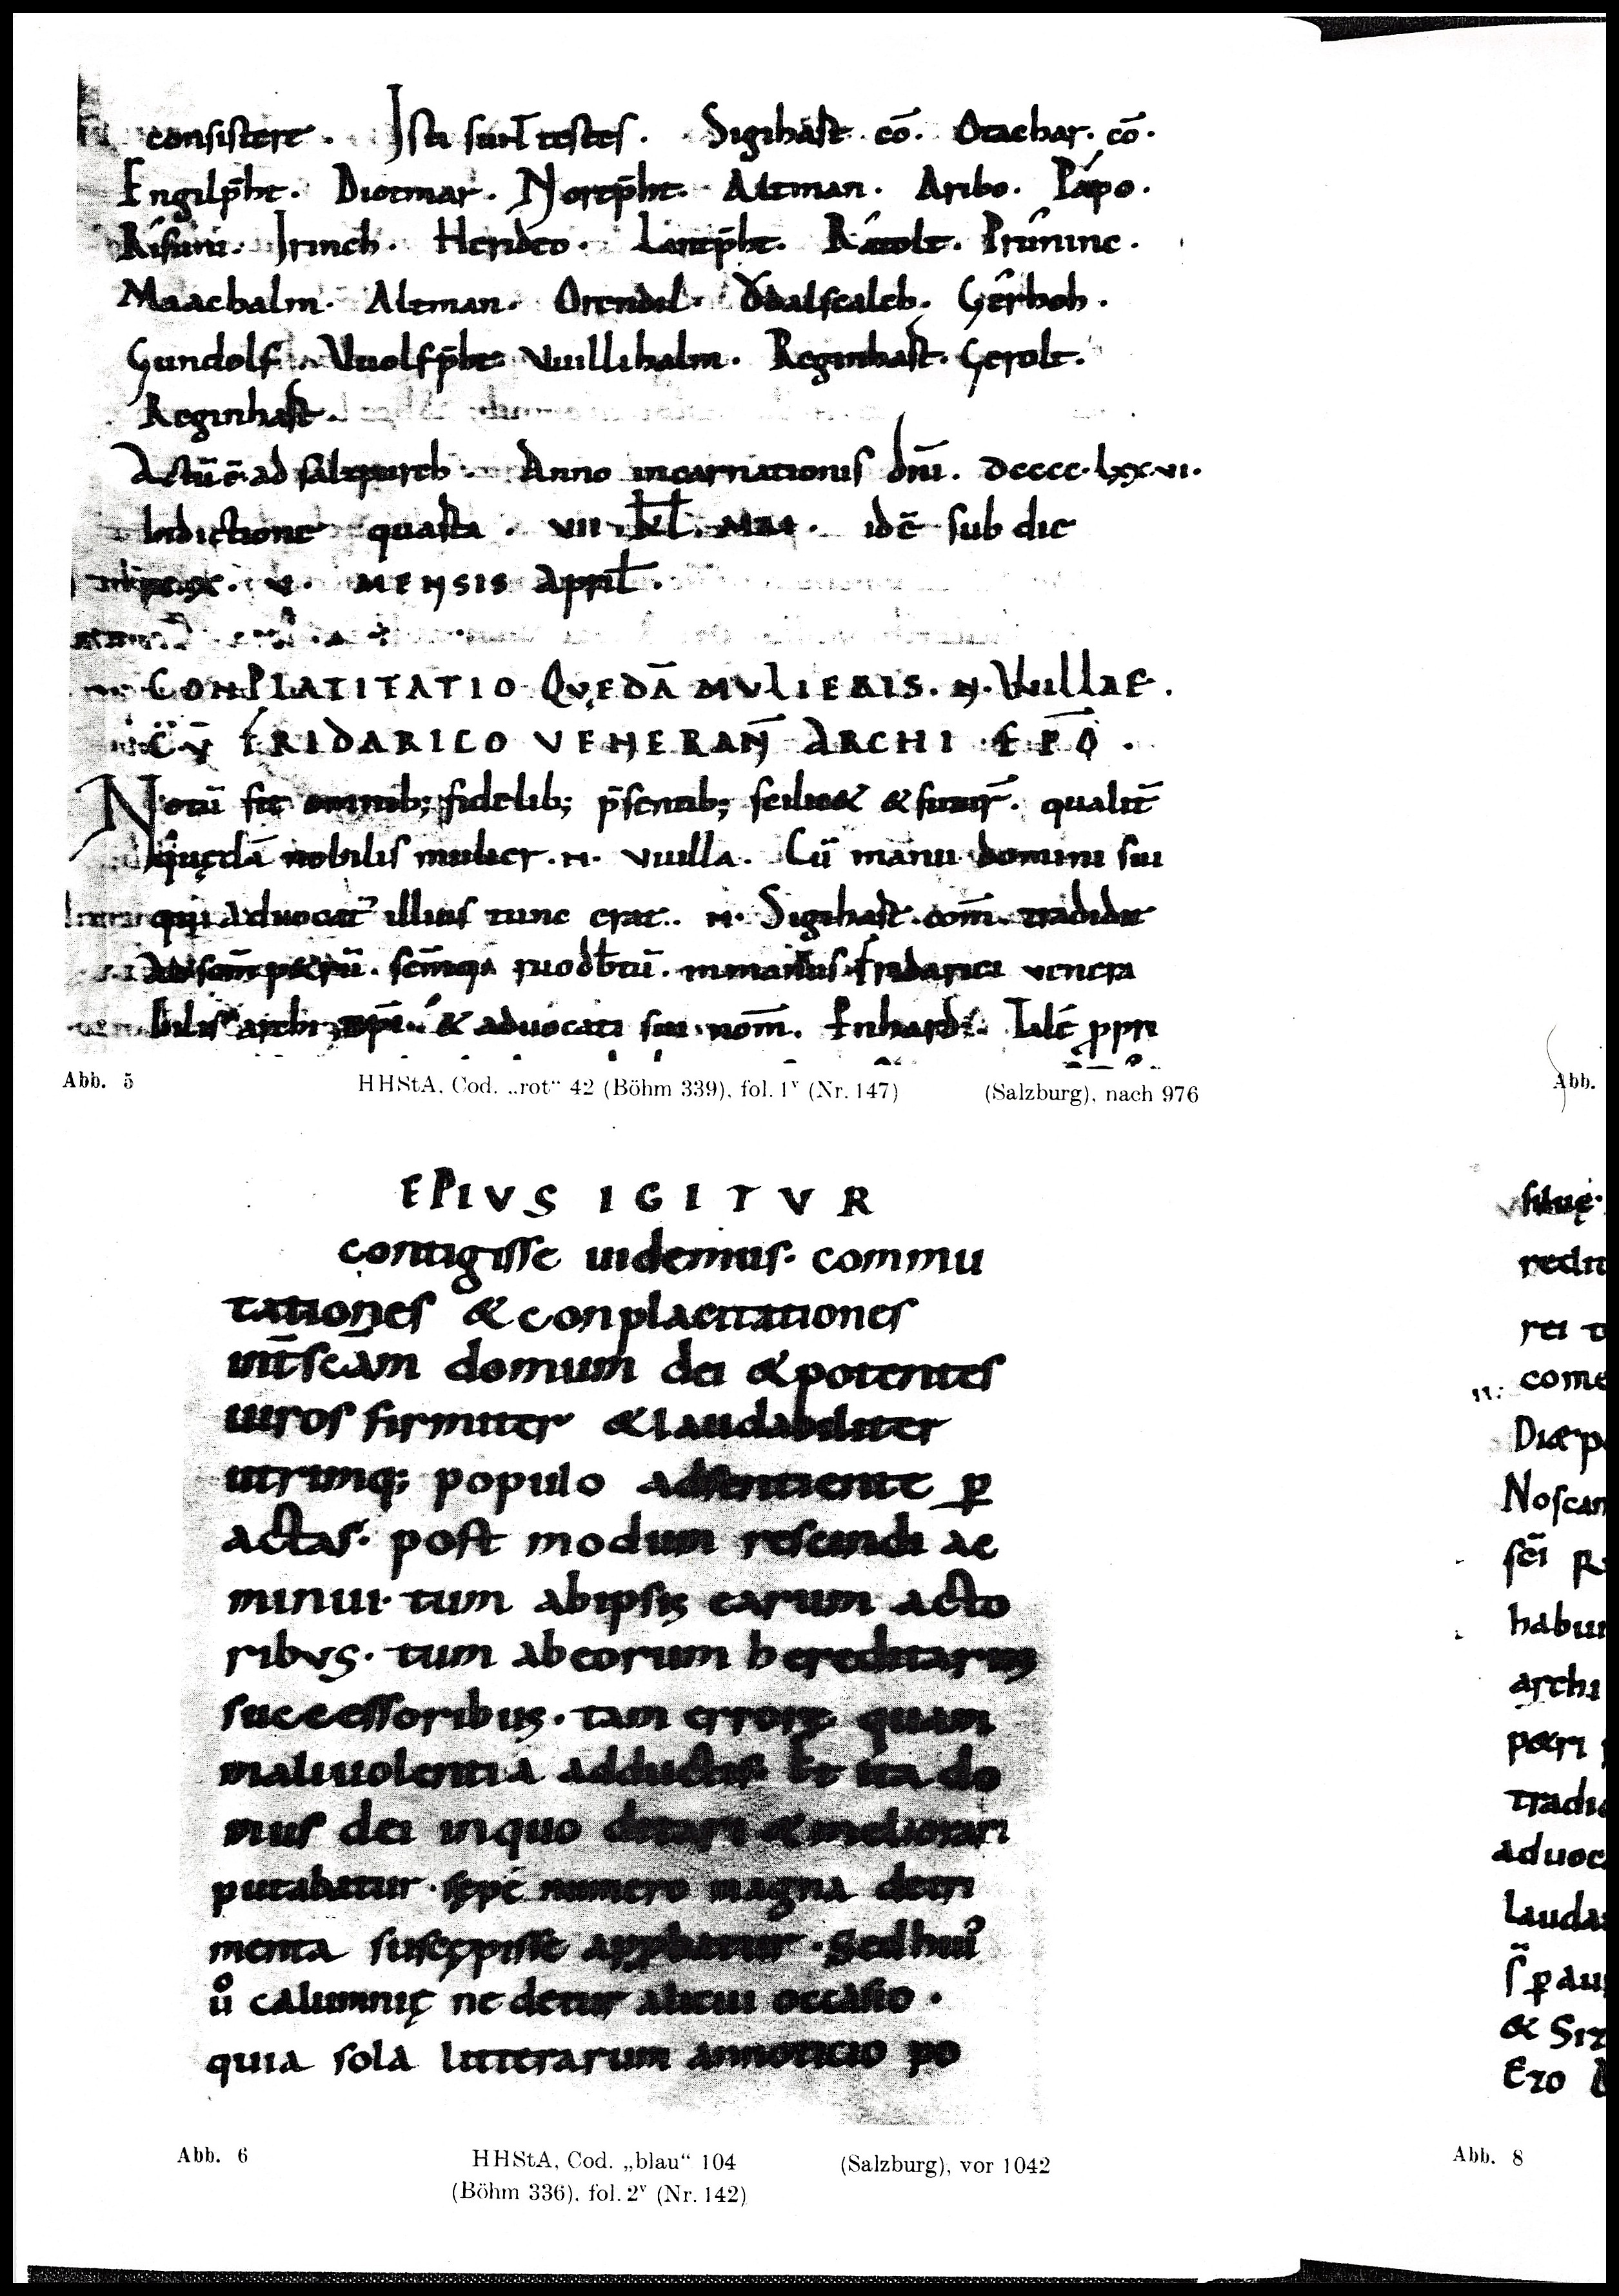 consistere. Isti sunt testes. Sigihast cō. Otachar. cō.
Engilp̄ht. Diotmar. Nortp̄ht. Altman. Aribo. Pápo.
Irinch. Herideo. Lantp̄ht. Rátolt. Prûninc.
Maachalm. Altman. Orendil. Ódalscalch. Gêrhoh.
Gundolf. Vuolfp̄ht. Vuillihalm. Reginhast. Gerolt.
Reginhast.
Actū ē ad salzpurch. Anno incarnationis dn̄i. dcccc.lxx.vi.
Indictione quarta. vii. kl. mai. idē sub die
v. MENSIS April.
CONPLATITATIO QVĘDĀ MVLIERIS. N. VuillaE.
CV̄ FRIDARICO VENERAN̄ ARCHI EP̄O.
Notū sit omnib; fidelib; p̄sentib; scilic& & futur̄. qualit̄
quędā nobilis mulier. n. vuilla. Cū manu domini sui
qui aduocat illius tunc erat. n. Sigihast. com̄. tradidit
ruodb̄tū. in manus fridarici venera
bilis archi ep̄i. & aduocati sui nom̄. Enhardi. Talē ppri
Abb. 5 HHStA, Cod. „rot“ 42 (Böhm 339), fol. 1ᵛ (Nr. 147) (Salzburg), nach 976
Abb.
EPIVS IGITVR
contigisse uidemus. commu
tationes & conplacitationes
int̄ sc̄am domum dei & potentes
uiros firmiter & laudabiliter
utrimq; populo adsentiente p̱
actas. post modum rescindi ac
minui. tum abipsis earum acto
ribus. tum abeorum hereditariis
successoribus. tam erroris quam
maliuolentia adductis. Et ita do
mus dei inquo ditari & meliorari
putabatur. sępe numero magna detri
menta suscępisse Sed hui᾿
uͦ calumnię ne detur alicui occasio.
quia sola litterarum annoticio po
Abb. 6 HHStA, Cod. „blau“ 104 (Salzburg), vor 1042
(Böhm 336), fol. 2ᵛ (Nr. 142)
siluę.
redit
rei
come
Noscan
sc̄i
habui
archi
p&ri
tradi
aduoc
lauda
& Siz
Ezo
Abb. 8